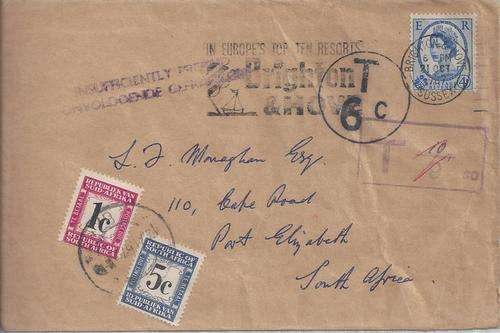 IN EUROPE'S TOP TEN RESORTS
Brighton
& HOVE
INSUFFICIENTLY
E R
BRIGHTON
SUSSEX
T
6 c
T 10/
L. J. Monaghan Esq.
110, Cape Road
Port Elizabeth
South Africa.
REPUBLIEK VAN
SUID-AFRIKA
TE BETAAL
1c
REPUBLIC OF
SOUTH AFRICA
REPUBLIC OF
SOUTH AFRICA
5c
TE BETAAL
REPUBLIEK VAN
SUID-AFRIKA